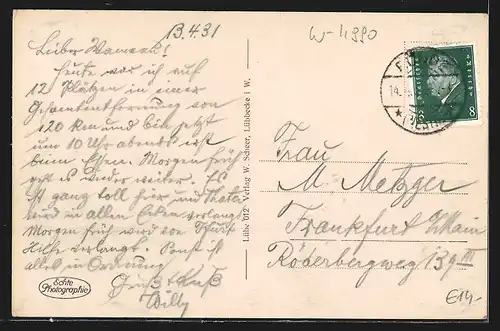 13.4.31
W-4990
Lieber Mamernl!
Heute war ich auf
12 Plätzen in einer
Gesamtentfernung von
120 km und bin jetzt
um 10 Uhr abends erst
beim Essen. Morgen früh
geht es wieder weiter. Es
ist ganz toll hier und
wird in allen Ecken verlangt
Morgen früh wird von
Hilfe verlangt. Sonst ist
alles in Ordnung
Gruß + Kuß
Willy
Echte
Photographie
Lübbe 012. Verlag W. Scheer, Lübbecke i. W.
8
Frau
M. Metzger
Frankfurt /Main
Röderbergweg 139 III
E14,-